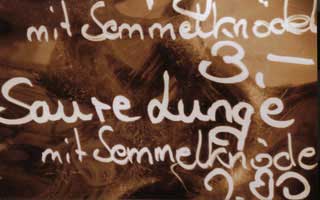 mit Semmelknödel
3,-
Saure Lunge
mit Semmelknöde